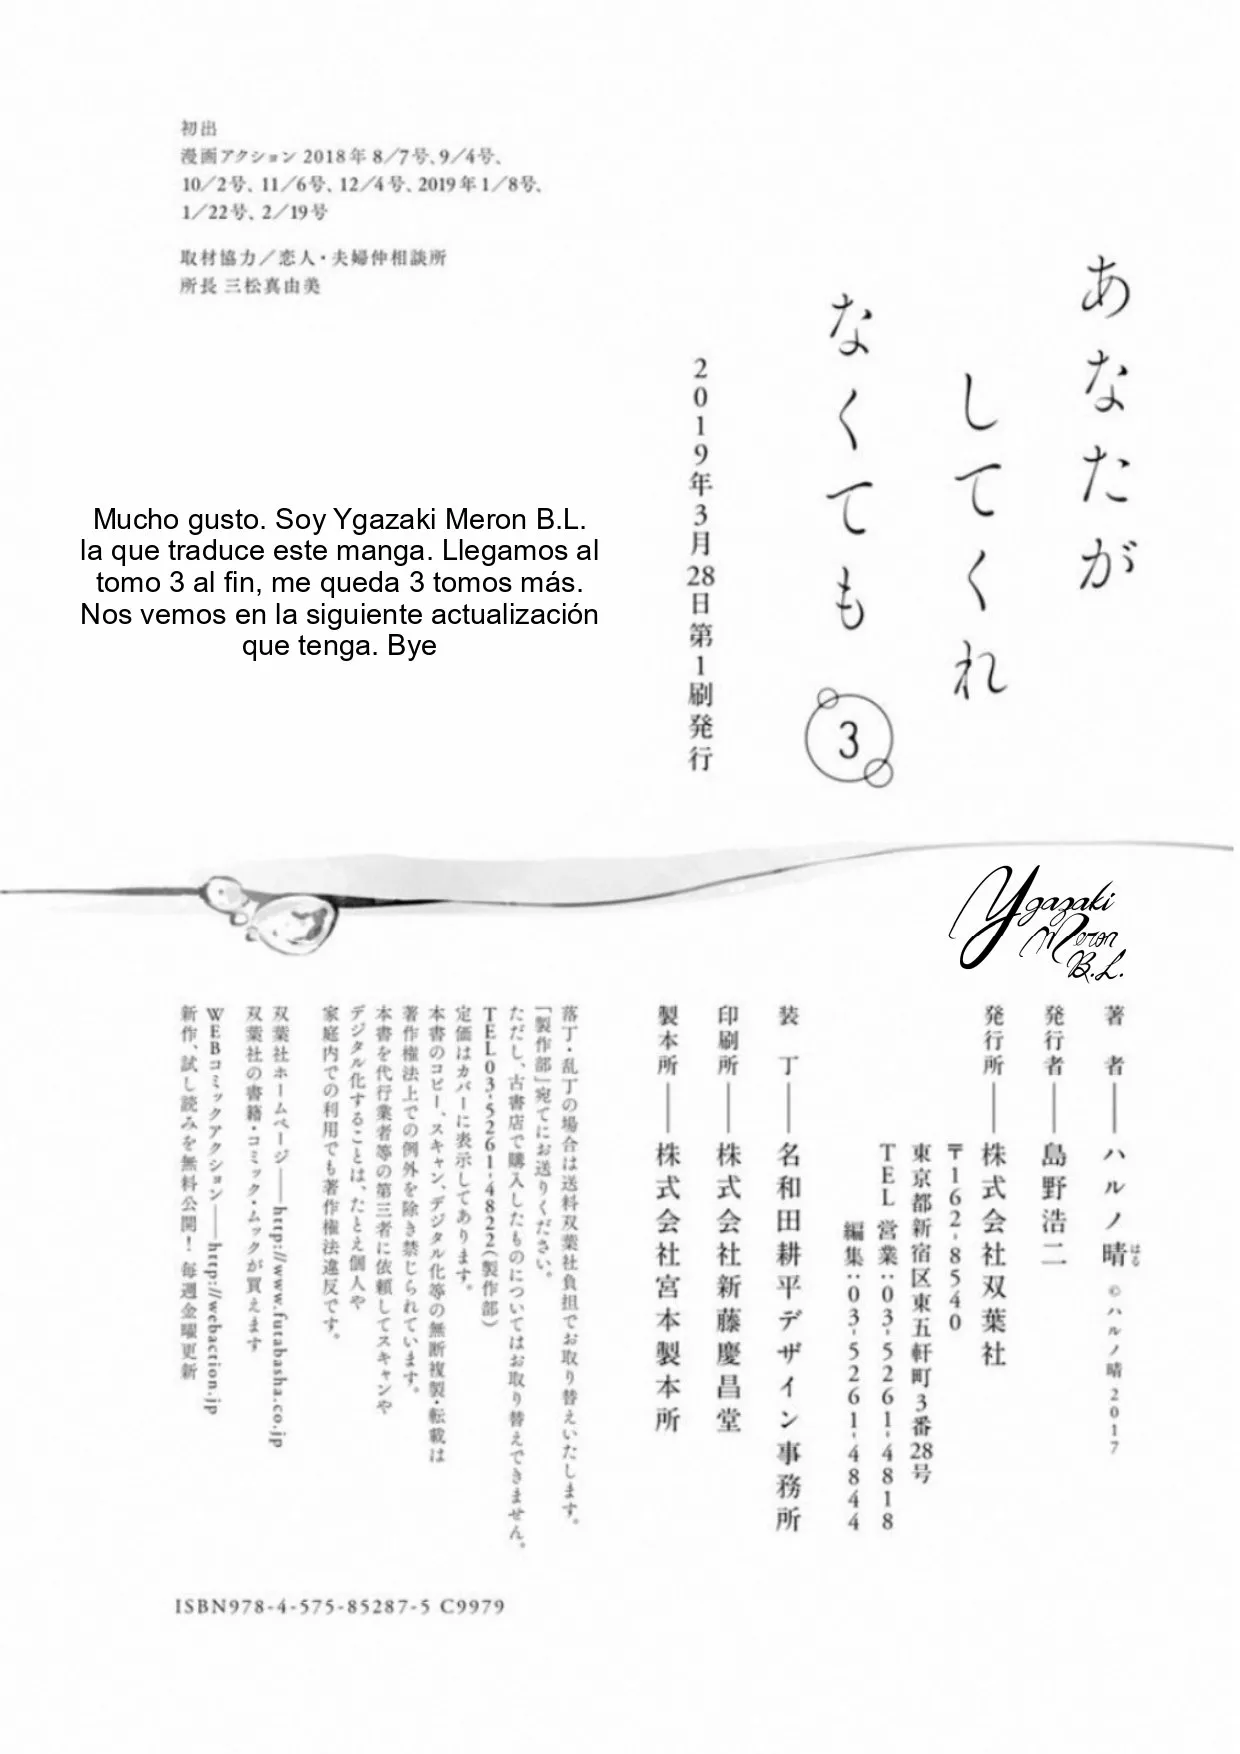 初出
漫画アクション 2018年 8／7号、9／4号、
10／2号、11／6号、12／4号、2019年1／8号、
1／22号、2／19号
取材協力／恋人・夫婦仲相談所
所長 三松真由美
あなたが
してくれ
なくても
3
2019年3月28日第1刷発行
Mucho gusto. Soy Ygazaki Meron B.L.
la que traduce este manga. Llegamos al
tomo 3 al fin, me queda 3 tomos más.
Nos vemos en la siguiente actualización
que tenga. Bye
Ygazaki
Meron
B.L.
著　者――ハルノ晴 ©ハルノ晴 2017
はる
発行者――島野浩二
発行所――株式会社双葉社
〒162-8540
東京都新宿区東五軒町3番28号
TEL 営業:03-5261-4818
編集:03-5261-4844
装　丁――名和田耕平デザイン事務所
印刷所――株式会社新藤慶昌堂
製本所――株式会社宮本製本所
落丁・乱丁の場合は送料双葉社負担でお取り替えいたします。
「製作部」宛てにお送りください。
ただし、古書店で購入したものについてはお取り替えできません。
TEL03-5261-4822(製作部)
定価はカバーに表示してあります。
本書のコピー、スキャン、デジタル化等の無断複製・転載は
著作権法上での例外を除き禁じられています。
本書を代行業者等の第三者に依頼してスキャンや
デジタル化することは、たとえ個人や
家庭内での利用でも著作権法違反です。
双葉社ホームページ――http://www.futabasha.co.jp
双葉社の書籍・コミック・ムックが買えます
WEBコミックアクション――http://webaction.jp
新作、試し読みを無料公開！ 毎週金曜更新
ISBN978-4-575-85287-5 C9979